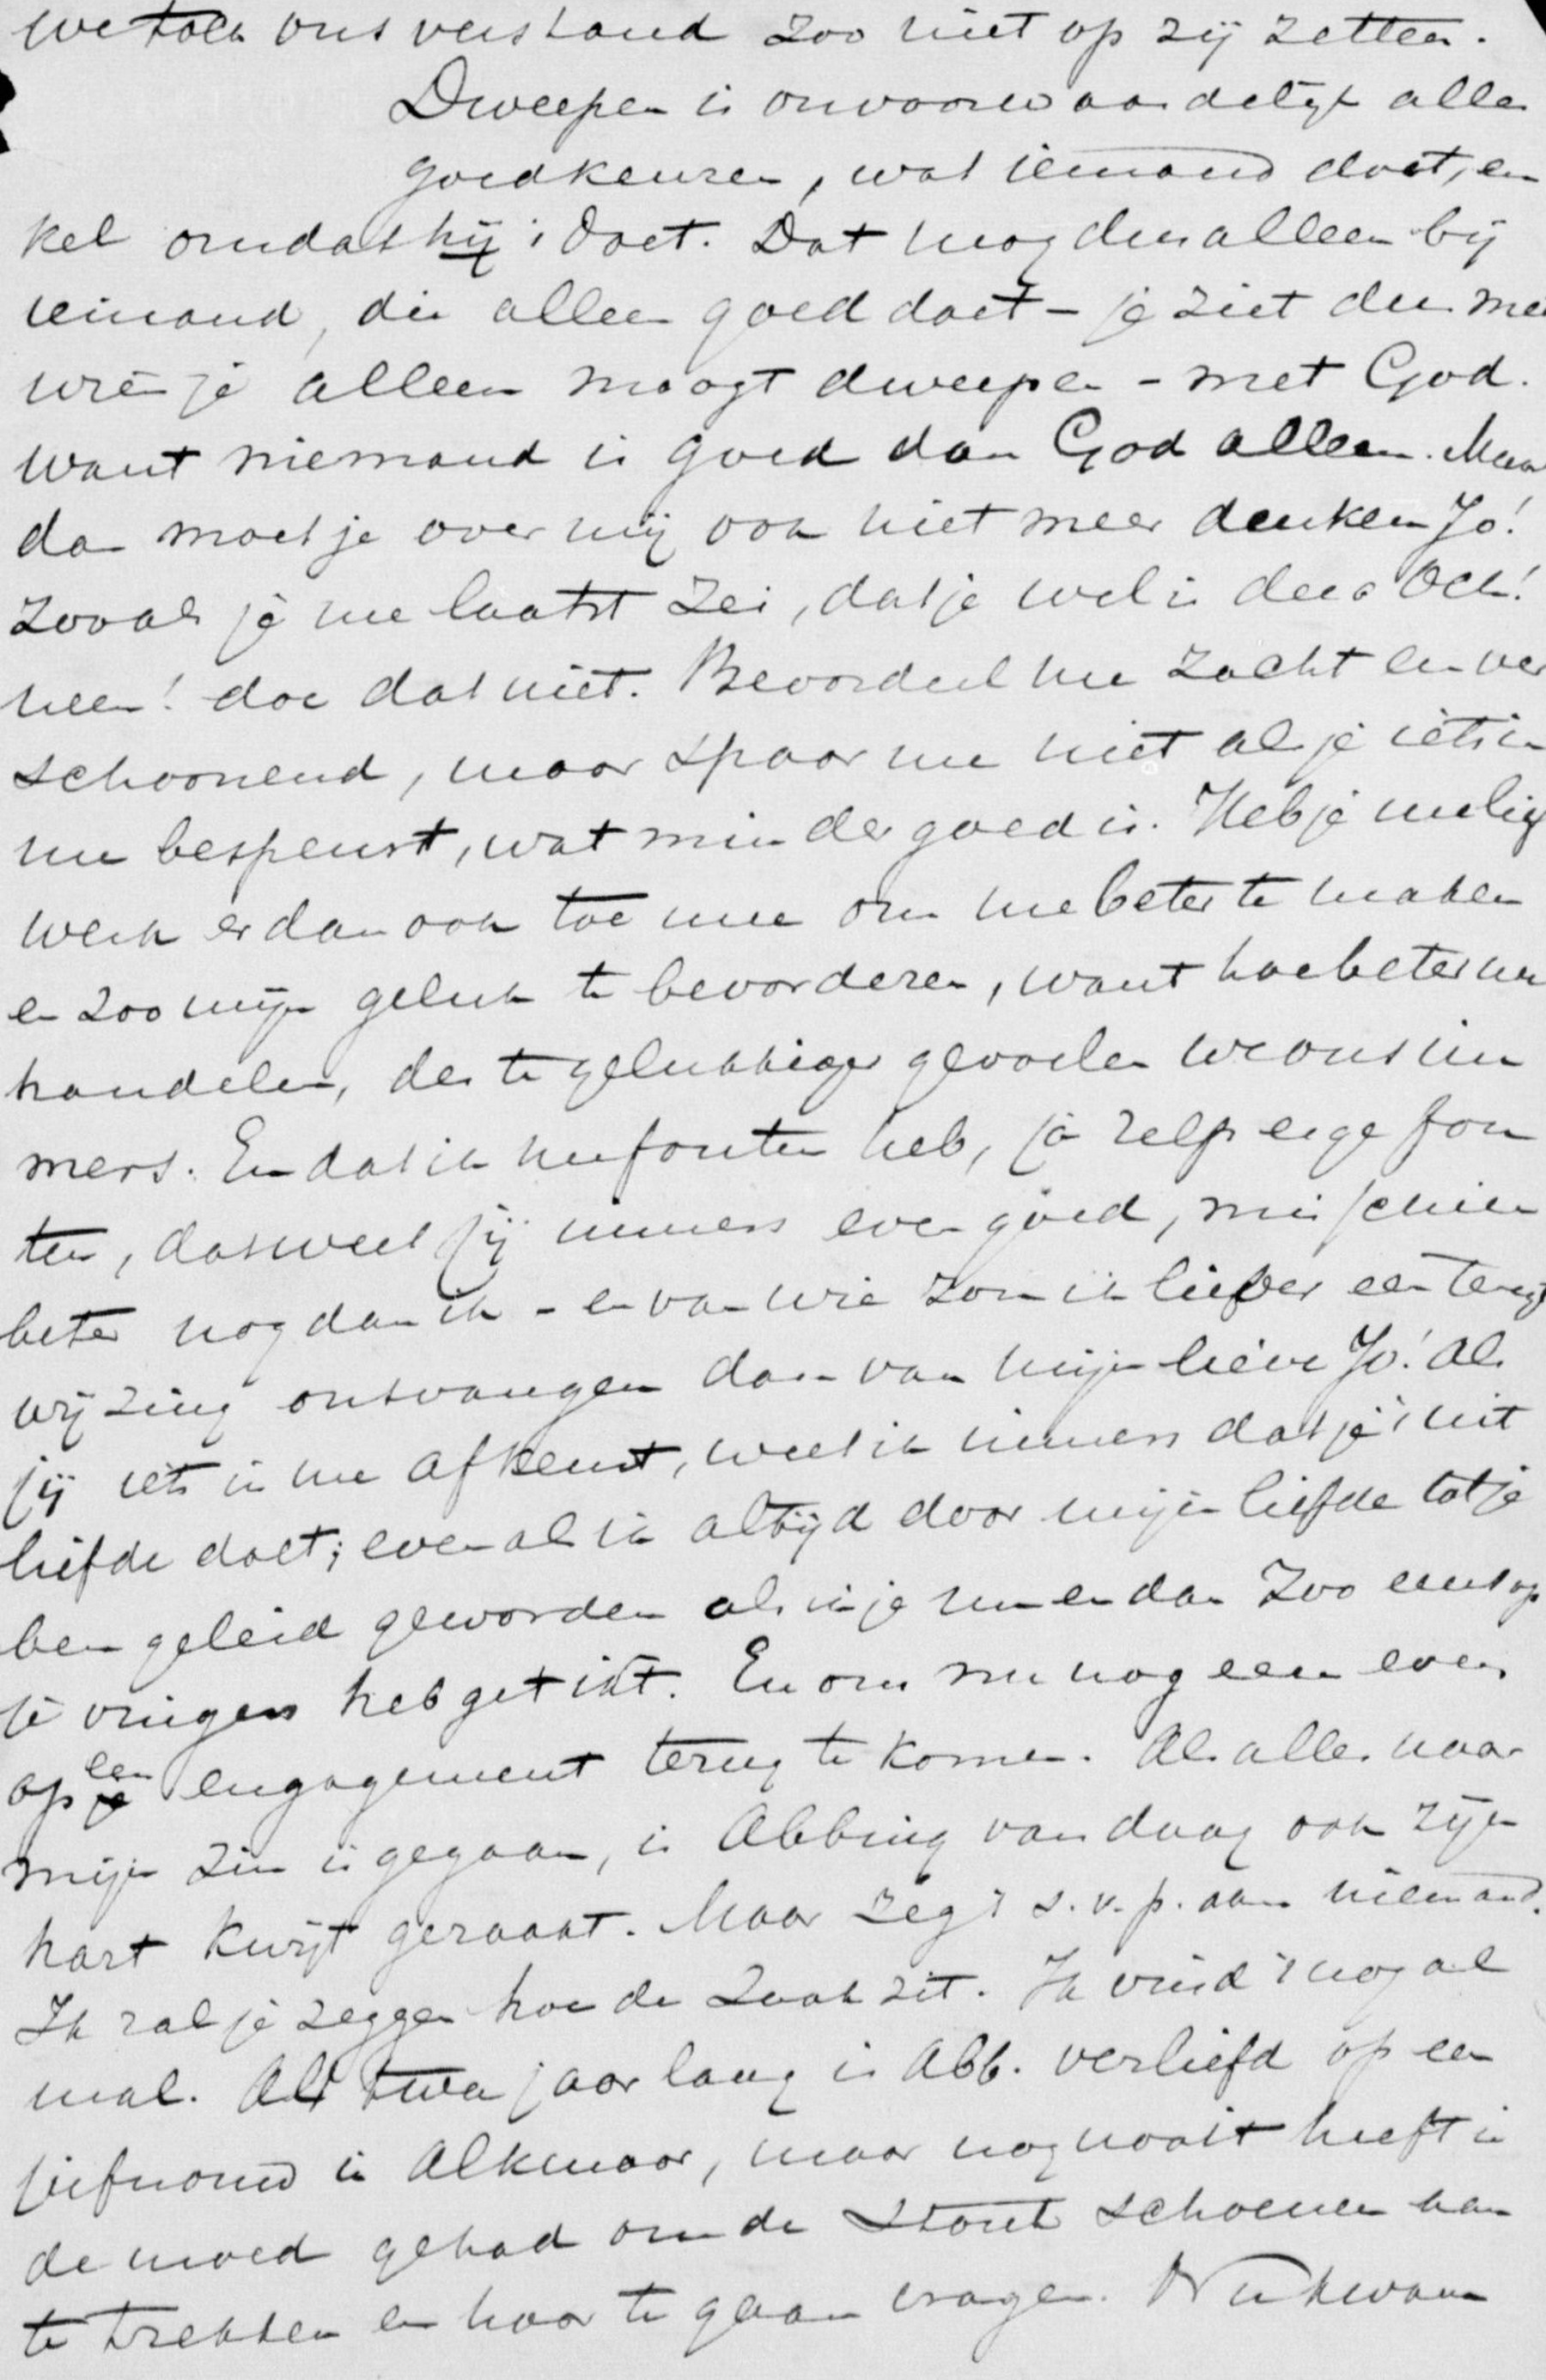 we toch ons verstand zoo niet op zij zetten.
Dweepen is onvoorwaardelijk alles
goedkeuren, wat iemand doet, en
kel omdat hij 't doet. Dat mag dus alleen bij
iemand, die alleen goed doet - je ziet dus met
wien je alleen moogt dweepen - met God.
want niemand is goed dan God alleen. Maar
dan moet je over mij ook niet meer denken Jo!
zooals je me laatst zei, dat je wel is deed. Och!
neen! doe dat niet. Beoordeel me zacht en ver
schoonend, maar spaar me niet als je iets in
me bespeurt, wat minder goed is. Heb je me lief
werk er dan ook toe mee om me beter te maken
en zoo mijn geluk te bevorderen, want hoe beter we
handelen, des te gelukkiger gevoelen we ons im
mers. En dat ik nu fouten heb, ja zelfs erge fou
ten, dat weet jij immers even goed, misschien
beter nog dan ik - en van wie zou ik liever een tereg
wijzing ontvangen dan van mijn lieve Jo! Als
jij iets in me afkeurt, weet ik immers dat je 't uit
liefde doet; evenals ik altijd door mijn liefde tot je
ben geleid geworden als ik je nu en dan zoo eens op
je vingers heb getikt. En om nu nog een even
op een engagement terug te komen. Als alles naar
mijn zin is gegaan, is Abbing vandaag ook zijn
hart kwijt geraakt. Maar zeg 't s.v.p. aan niemand.
Ik zal je zeggen hoe de zaak zit. Ik vind 't nogal
mal. Al twee jaar lang is Abb. verliefd op een
juffrouw in Alkmaar, maar nog nooit heeft ie
de moed gehad om de stoute schoenen aan
te trekken en haar te gaan vragen. Nu kwam